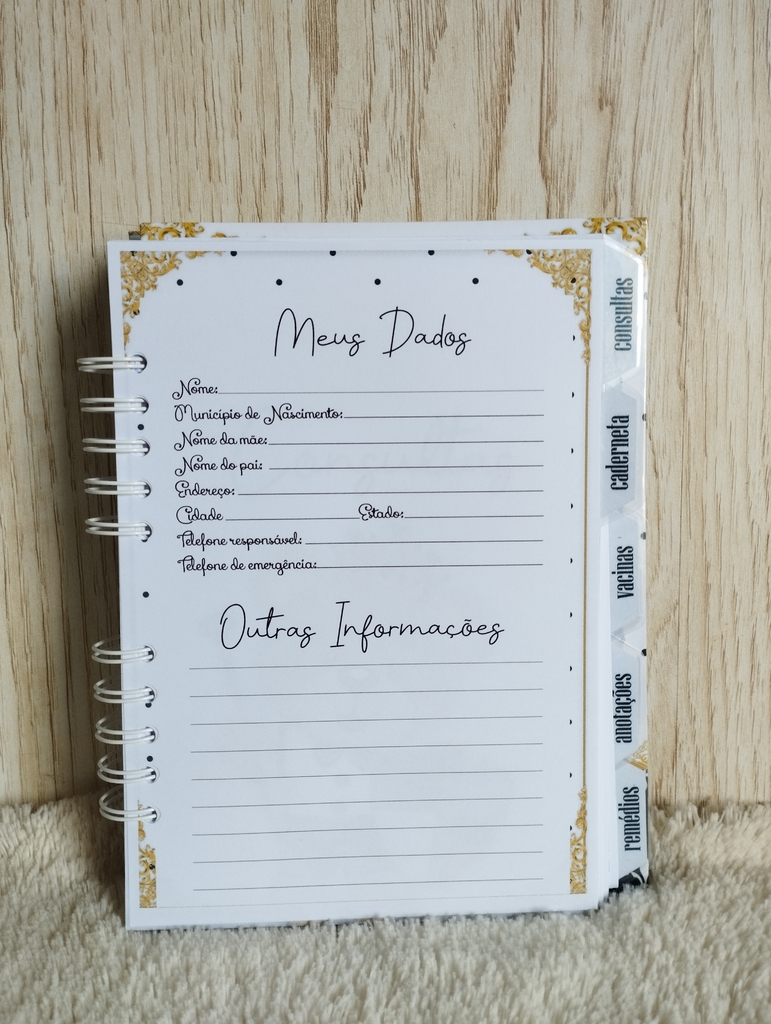 Meus Dados
Nome:
Município de Nascimento:
Nome da mãe:
Nome do pai:
Endereço:
Cidade Estado:
Telefone responsável:
Telefone de emergência:
Outras Informações
consultas
caderneta
vacinas
anotações
remédios